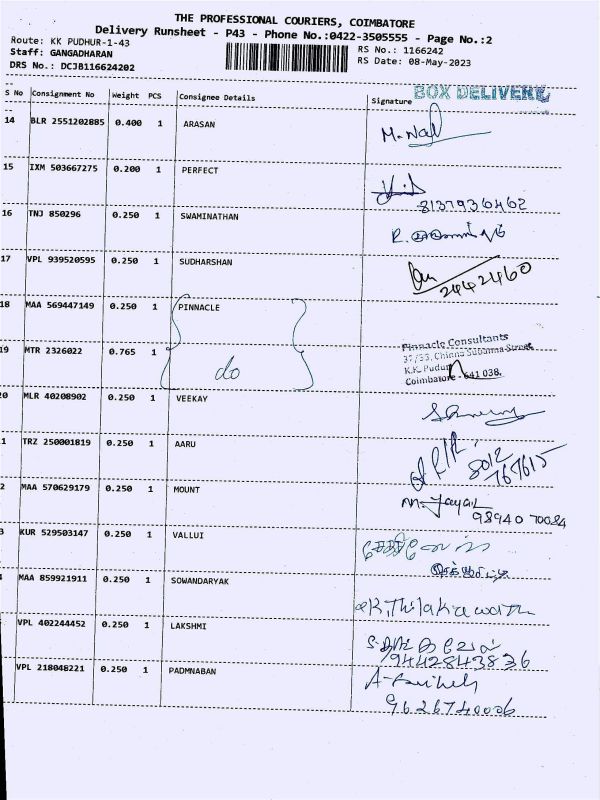 THE PROFESSIONAL COURIERS, COIMBATORE
Delivery Runsheet - P43 - Phone No.:0422-3505555 - Page No.:2
Route: KK PUDHUR-1-43
RS No.: 1166242
Staff: GANGADHARAN
RS Date: 08-May-2023
DRS No.: DCJB116624202
BOX DELIVERY
S No Consignment No Weight PCS Consignee Details Signature
14 BLR 2551202885 0.400 1 ARASAN
15 IXM 503667275 0.200 1 PERFECT
8137936462
16 TNJ 850296 0.250 1 SWAMINATHAN
17 VPL 939520595 0.250 1 SUDHARSHAN
2442460
18 MAA 569447149 0.250 1 PINNACLE
Pinnacle Consultants
19 MTR 2326022 0.765 1 do
37/33, Chinna Subanna Street
K.K. Pudur
Coimbatore - 641 038.
0 MLR 40208902 0.250 1 VEEKAY
1 TRZ 250001819 0.250 1 AARU
8012
767615
2 MAA 570629179 0.250 1 MOUNT
98940 70084
3 KUR 529503147 0.250 1 VALLUI
4 MAA 859921911 0.250 1 SOWANDARYAK
VPL 402244452 0.250 1 LAKSHMI
9442843836
VPL 218048221 0.250 1 PADMNABAN
9626740006